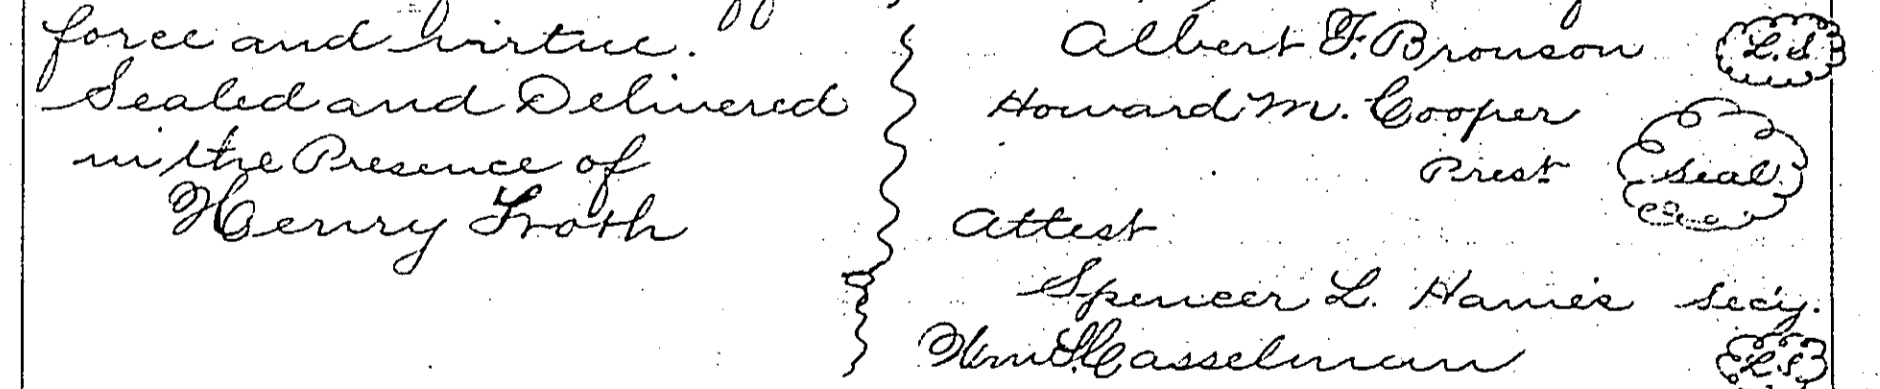 force and virtue.
Sealed and Delivered
in the Presence of
Henry Troth
Albert F. Bronson L.S
Howard M. Cooper
Prest Seal
Attest
Spencer L. Haines Secy.
Wm S. Casselman L.S